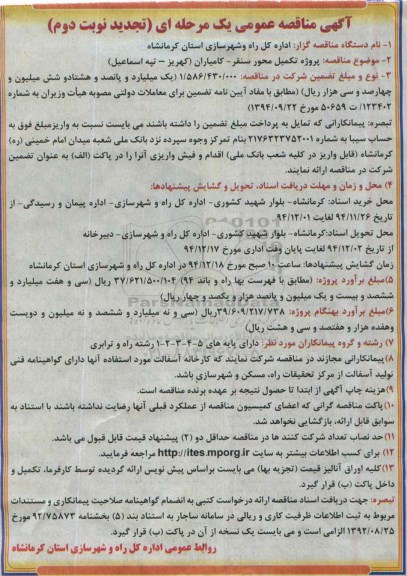 آگهی مناقصه عمومی یک مرحله ای (تجدید نوبت دوم)
۱- نام دستگاه مناقصه گزار: اداره کل راه وشهرسازی استان کرمانشاه
۲- موضوع مناقصه: پروژه تکمیل محور سنقر- کامیاران (کهریز – تپه اسماعیل)
۳- نوع و مبلغ تضمین شرکت در مناقصه: ۱/۵۸۶/۴۳۰/۰۰۰ (یک میلیارد و پانصد و هشتادو شش میلیون و
چهارصد و سی هزار ریال) (مطابق با مفاد آیین نامه تضمین برای معاملات دولتی مصوبه هیأت وزیران به شماره
۱۲۳۴۰۲/ ت ۵۰۶۵۹ مورخ ۱۳۹۴/۰۹/۲۲)
تبصره: پیمانکارانی که تمایل به پرداخت مبلغ تضمین را داشته باشند می بایست نسبت به واریزمبلغ فوق به
حساب سیبا به شماره ۲۱۷۶۳۲۳۷۵۲۰۰۱ بنام تمرکز وجوه سپرده نزد بانک ملی شعبه میدان امام خمینی (ره)
کرمانشاه (قابل واریز در کلیه شعب بانک ملی) اقدام و فیش واریزی آنرا را در پاکت (الف) به عنوان تضمین
شرکت در مناقصه ارائه نمایند.
۴) محل و زمان و مهلت دریافت اسناد، تحویل و گشایش پیشنهادها:
محل خرید اسناد: کرمانشاه- بلوار شهید کشوری- اداره کل راه و شهرسازی- اداره پیمان و رسیدگی- از
تاریخ ۹۴/۱۱/۲۶ لغایت ۹۴/۱۲/۰۱
محل تحویل اسناد:کرمانشاه- بلوار شهید کشوری- اداره کل راه و شهرسازی- دبیرخانه
از تاریخ ۹۴/۱۲/۰۲ لغایت پایان وقت اداری مورخ ۹۴/۱۲/۱۷
زمان گشایش پیشنهادها: ساعت ۱۰ صبح مورخ ۹۴/۱۲/۱۸ در اداره کل راه و شهرسازی استان کرمانشاه
۵)مبلغ برآورد پروژه: (مطابق با فهرست بها راه و باند ۹۴) ۳۷/۶۲۱/۵۰۰/۱۰۴ ریال (سی و هفت میلیارد و
ششصد و بیست و یک میلیون و پانصد هزار ویکصد و چهار ریال)
۶)مبلغ برآورد بهنگام پروژه: ۳۹/۶۰۹/۲۱۷/۷۳۸ریال (سی و نه میلیارد و ششصد و نه میلیون و دویست
وهفده هزار و هفتصد و سی و هشت ریال)
۷) رشته و گروه پیمانکاران مورد نظر: دارای پایه های ۵-۴-۳-۲-۱ رشته راه و ترابری
۸)پیمانکارانی مجازند در مناقصه شرکت نمایند که کارخانه آسفالت مورد استفاده آنها دارای گواهینامه فنی
تولید آسفالت از مرکز تحقیقات راه، مسکن و شهرسازی باشد.
۹)هزینه چاپ آگهی از ابتدا تا حصول نتیجه بر عهده برنده مناقصه است.
۱۰)پاکت مناقصه گرانی که اعضای کمیسیون مناقصه از عملکرد قبلی آنها رضایت نداشته باشند با استناد به
سوابق قابل ارائه، بازگشایی نخواهد شد.
۱۱) حد نصاب تعداد شرکت کنند ها در مناقصه حداقل دو (۲) پیشنهاد قیمت قابل قبول می باشد.
۱۲) برای کسب اطلاعات بیشتر به سایت http://ites.mporg.ir مراجعه فرمایید.
۱۳) کلیه اوراق آنالیز قیمت (تجزیه بها) می بایست براساس پیش نویس ارائه گردیده توسط کارفرما، تکمیل و
داخل پاکت (ب) قرار گیرد.
تبصره: جهت دریافت اسناد مناقصه ارائه درخواست کتبی به انضمام گواهینامه صلاحیت پیمانکاری و مستندات
مربوط به ثبت اطلاعات ظرفیت کاری و ریالی در سامانه ساجار به استناد بند (۵) بخشنامه ۹۲/۷۵۸۷۳ مورخ
۱۳۹۲/۰۸/۲۵ الزامی است و می بایست یک نسخه از آن در پاکت (ب) قرار گیرد.
روابط عمومی اداره کل راه و شهرسازی استان کرمانشاه